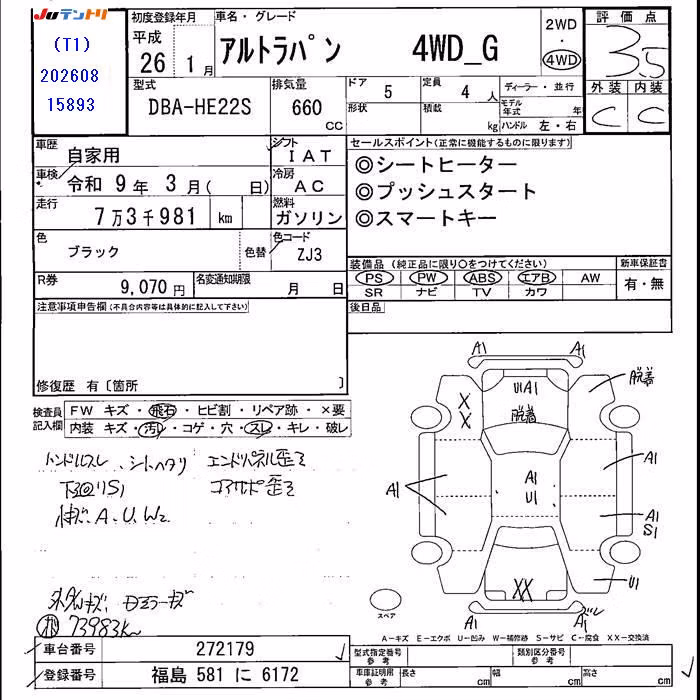 Juテントリ
(T1)
202608
15893
初度登録年月
平成
26 1月
車名・グレード
アルトラパン 4WD_G
2WD
・
4WD
評価点
3.5
外装 内装
C C
型式
DBA-HE22S
排気量
660
CC
ドア
5
定員
4人
ディーラー・並行
形状
積載
kg
モデル年式 年
ハンドル 左・右
車歴
自家用
シフト
IAT
車検
令和 9年 3月( 日)
冷房
AC
走行
7万3千981 km
燃料
ガソリン
色
ブラック
色替
色コード
ZJ3
R券
9,070円
名変通知期限
月 日
セールスポイント(正常に機能するものに限ります)
◎シートヒーター
◎プッシュスタート
◎スマートキー
装備品 (純正品に限り○をつけてください)
新車保証書
PS PW ABS エアB AW
SR ナビ TV カワ
有・無
後日品
注意事項申告欄(不具合内容等は具体的に記入して下さい)
修復歴 有〔箇所 〕
検査員
記入欄
FW キズ・飛石・ヒビ割・リペア跡・×要
内装 キズ・汚レ・コゲ・穴・スレ・キレ・破レ
ハンドルスレ、シートヘタリ
エンドパネル歪ミ
下回りS1
コアサポ歪ミ
キズ、A、U、W2
73983K
A1 A1
U1 A1
脱着
A1
脱着
X
X
A1
A1
A1
U1
A1
S1
U1
XX
A1
スペア
A-キズ E-エクボ U-凹み W-補修跡 S-サビ C-腐食 XX-交換済
車台番号
272179
登録番号
福島 581 に 6172
型式指定番号
参考
類別区分番号
参考
車庫証明用
参考
長さ cm
幅 cm
高さ cm